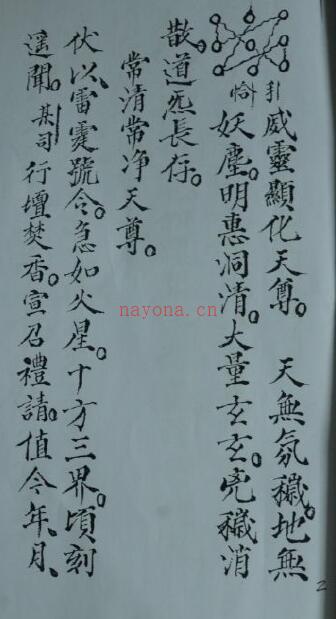 引 威靈顯化天尊。 天無氛穢。地無
恰 妖塵。明惠洞清。大量玄玄。兇穢消
散。道炁長存。
常清常净天尊。
伏以雷霆號令。急如火星。十方三界。頃刻
遥聞。某司行壇焚香。宣召禮請。值今年、月、
2
nayona.cn